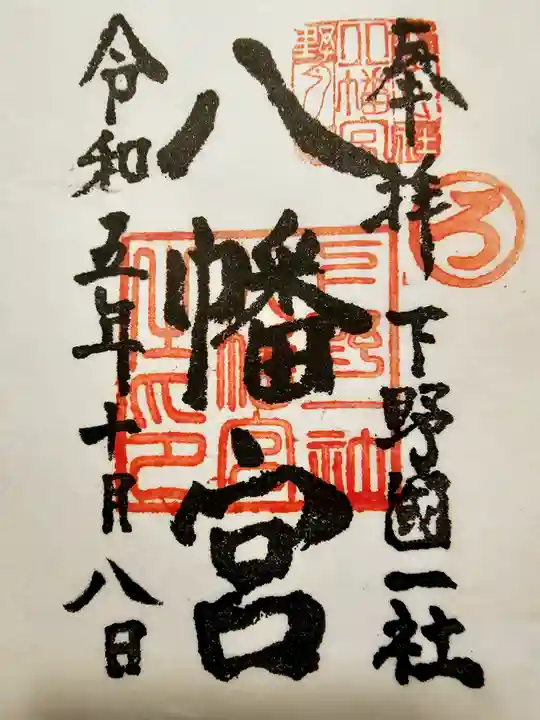 奉拝
下野國一社
八幡宮
令和五年十月八日
ろ